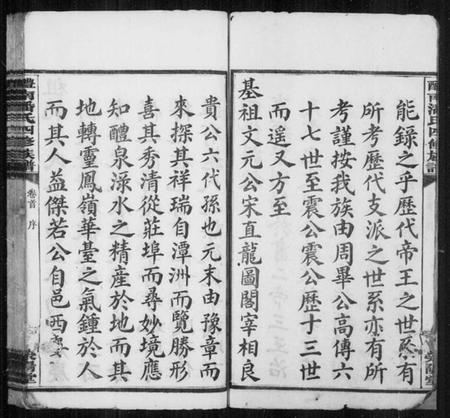 醴南潘氏四修族譜
能錄之乎歷代帝王之世系有
所考歷代支派之世系亦有所
考謹按我族由周畢公高傳六
十七世至震公震公歷十三世
而遙又方至
基祖文元公宋直龍圖閣宰相良
貴公六代孫也元末由豫章而
來探其祥瑞自潭洲而覽勝形
喜其秀清從莊埠而尋妙境應
知醴泉淥水之精產於地而
地轉靈鳳嶺華臺之氣鍾於人
而其人益傑若公自邑西
醴南潘氏四修族譜
卷首 序